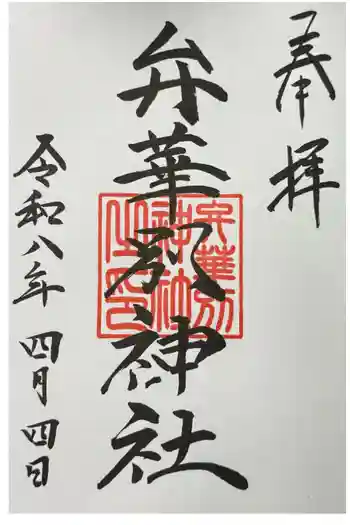 奉拝
弁華別神社
弁華別
神社
之印
令和八年四月四日